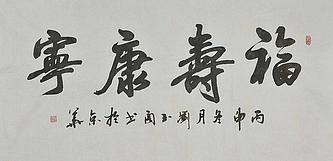 福壽康寧
丙申冬月劉玉國書於京華